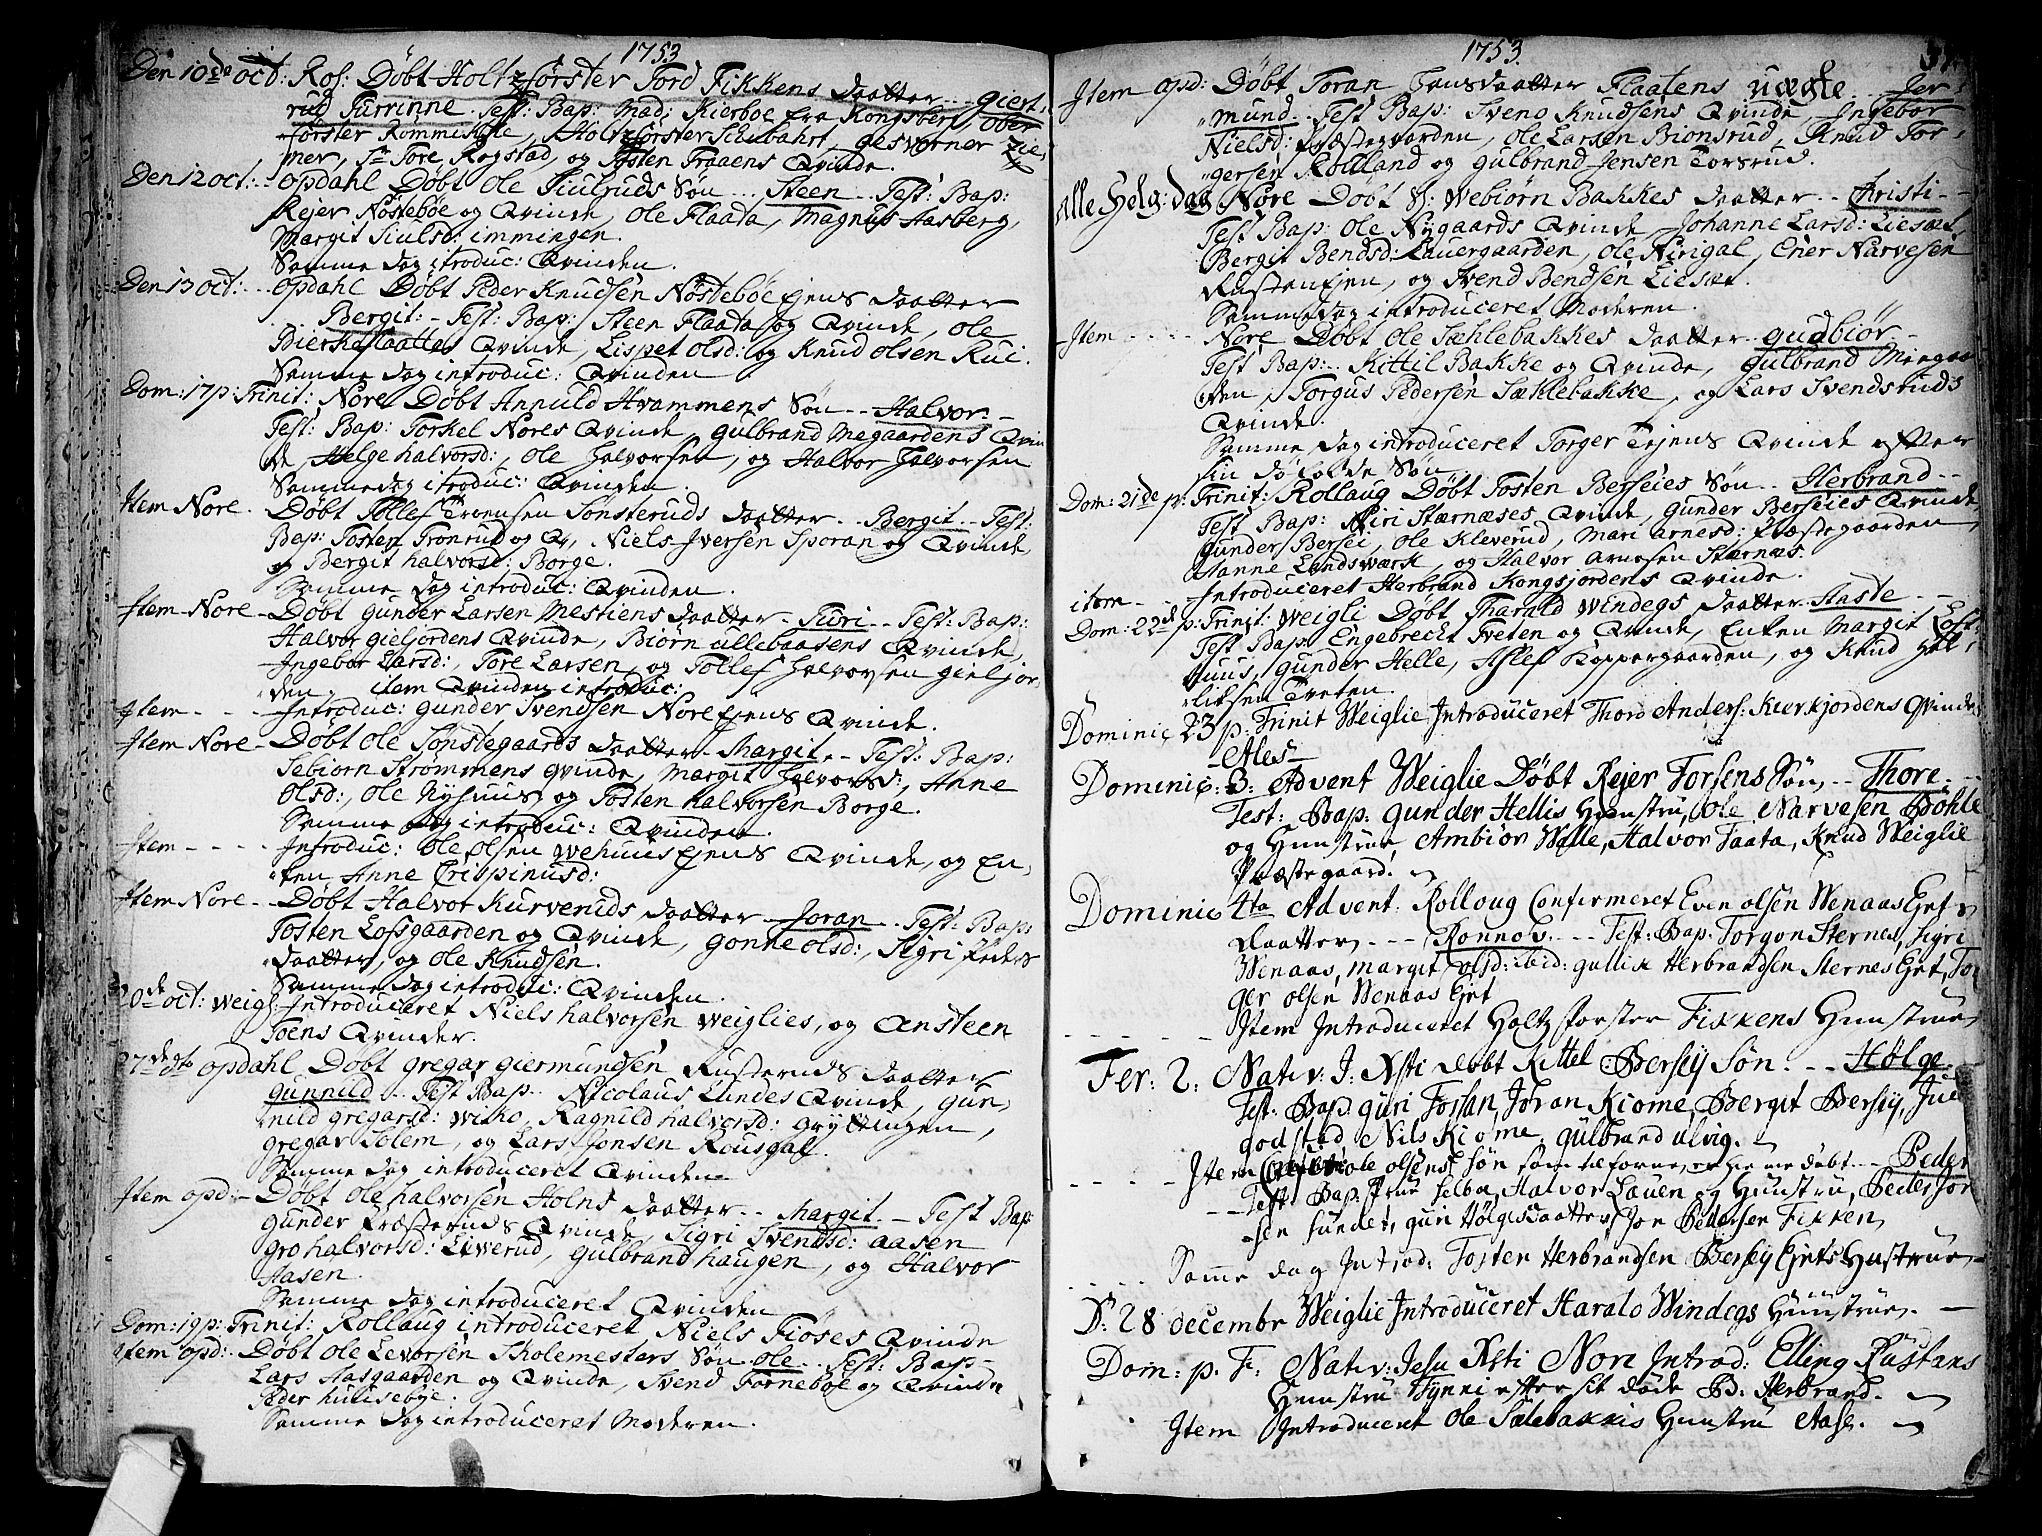 1753
Den 10de oct: Rol: Døbt Holtzførster Tord Fikkens daatter - - Giert-
rud Turrinne. Test: Bap: Mad: Kierboe fra Kongsberg, ober
førster Rommichte, Holtzførster Schubahrt, gesvorner Zie,
mer, Sr Tore Rogstad, og Tosten Traaens Qvinde.
Den 12 oct: - - Opdahl Døbt Ole Siulruds Søn - - Steen - - Test: Bap:
Rejer Nøstebøe og Qvinde, Ole Flaata, Magnus Aasberg,
Margit Siulsd: immingen.
Samme dag introduc: Qvinden.
Den 13 oct: - - Opdahl Døbt Peder Knudsen Nøstebøe Ejens daatter
Bergit: - Test: Bap: Steen Flaata og Qvinde, Ole
Bierkeflaattes Qvinde, Lispet olsd: og Knud olsen Rui.
Samme dag introduc: Qvinden
Dom: 17 p: Trinit: Nore Døbt Annuld Hvammens Søn - - Halvor. -
Test: Bap: Torkel Nores Qvinde, Gulbrand Megaardens Qvin
de, Helge halvorsd:, Ole Halvorsen, og Halvor Halvorsen
Samme dag introduc: Qvinden.
Item Nore. Døbt Tollef Evensen Sønsteruds daatter - - Bergit - - Test:
Bap: Tosten Tronrud og Qv, Niels Iversen Sporan og Qvinde,
og Bergit halvorsd: Borge.
Samme dag introduc: Qvinden.
Item Nore - Døbt Gunder Larsen Mestiens daatter - Turi - - Test: Bap:
Halvor gieljordens Qvinde, Biørn ullebaasens Qvinde,
Ingebor Larsd:, Tore Larsen, og Tollef Halvorsen gieljor,
den, item Qvinden introduc:
Item - - - Introduc: Gunder Svendsen Nore Ejens Qvinde.
Item Nore - Døbt Ole Sønstegaards daatter - Margit. - Test: Bap:
Sebiorn Strømmens Qvinde, Margit Halvorsd:, Anne
Olsd:, Ole Nyhuus, og Tosten halvorsen Borge.
Samme dag introduc: Qvinden.
Item - - - - Introduc: Ole Olsen Wehuus Ejens Qvinde, og En,
ken Anne Crispinusd:
Item Nore - - Døbt Halvor Kurveruds daatter Joran - - Test: Bap:
Tosten Lofsgaarden og Qvinde, Gonne olsd:, Sigri Peders
daatter, og Ole Knudsen.
Samme dag introduc: Qvinden.
20de oct: Weigl: Introduceret Niels halvorsen Weiglies, og Ansteen
Toens Qvinder.
27de dto Opdahl Døbt Gregar Giermundsen Rusteruds daatter
Gunnild - - Test Bap: Nicolaus Lundes Qvinde, Gun,
nild gregarsd: Wiho, Ragnild halvorsd: gryttingen,
Gregar Solem, og Lars Jonsen Rousgal.
Samme dag introduceret Qvinden
Item opd: - Døbt Ole halvorsen Holms daatter - - Margit - - Test Bap:
Gunder Præsteruds Qvinde, Sigri Svendsd: Aasen
Gro halvorsd: Liverud, Gulbrand haugen, og Halvor
Aasen.
Samme dag introduceret Qvinden
Dom: 19 p: Trinit: Rollaug introduceret Niels Fiøses Qvinde
Item opd: - Døbt Ole Levorsen Skolemesters Søn Ole - - Test: Bap -
Lars Aasgaarden og Qvinde, Svend Fornebøe og Qvinde
Peder huusebye.
Samme dag introduceret Moderen.
1753.
Item opd: Døbt Joran Jonsdaatter Flaatens uægte - - Jer-
mund. Test Bap: Sveno Knudsens Qvinde, Ingebor
Nielsd: Præstegaarden, Ole Larsen Bionsrud, Knud Tor,
gersen Rolland og Gulbrand Jensen Torsrud.
Alle Helg: dag Nore Døbt S: Webiørn Bakkes daatter - - Christi -
Test Bap: Ole Nygaards Qvinde, Johanne Larsd: Liesæt,
Bergit Bendsd: Lauergaarden, Ole Nirigal, Ener Narvesen
Rusten Ejen, og Svend Bendsen Liesæt.
Samme dag introduceret Moderen.
Item - - - - - Nore Døbt Ole Sæhlebakkes daatter - Gudbiør -
Test Bap: - Kittil Bakke og Qvinde, Gulbrand Miegaar
den, Torgus Pedersen Sæklebakke, og Lars Svendsruds
Qvinde.
Samme dag introduceret Torger Tejens Qvinde efter
sin dødfødde Søn.
Dom: 21de p: Trinit: Rollaug Døbt Tosten Berseies Søn - - Herbrand - -
Test Bap: Siri Stærnæses Qvinde, Gunder Berseies Qvinde,
Gunder Bersei, Ole Kleverud, Mari Arnesd: Præstegaarden,
Hanne Landsværk, og Halvor Arnesen Stærnæs.
item - - - Introduceret Herbrand Kongsjordens Qvinde.
Dom: 22de p: Trinit: Weigli Døbt Tharald Windegs daatter - Aaste - -
Test Bap: Engebrecht Tveten og Qvinde, Enken Margit Loft-
huus, Gunder Helle, Aslef Koppergaarden, og Knud Hel,
liksen Tveten.
Dominic, 23 p: Trinit Weiglie Introduceret Thord Anders: Kirkjordens Qvinde
Ales -
Dominic: 3: Advent Weiglie Døbt Rejer Torsens Søn, - - Thore. - -
Test: Bap: Gunder Hellis Huustru, Ole Narvesen Bøhle
og Huustrue, Ambiør Wolle, Halvor Taata, Knud Weiglie
Præstegaard.
Dominic 4ta Advent. Rolloug Confirmeret Even olsen Wenaas Ejet
Daatter - - - Ronnov. - - - Test: Bap: Torgon Sternes, Sigri
Wenaas, Margit olsd: ibid: Gullik Herbrandsen Sternes Ejet, Tor
ger olsen Wenaas Ejet
- - - - - - Item Introduceret Holtzførster Fikkens Huustrue,
Fer: 2: Nativ: J: Xsti døbt Kittel Bersey Søn. - - Hølge
Test: Bap. Guri Fossan, Joran Kiome, Bergit Bersey,
Godstad, Nils Kiome, Gulbrand ulvig.
- - - - - Item ole olsens søn som tilforne er hjemmedøbt - - Peder
- - Test: Bap: Frue selba, Halvor Lauen og Huustru, Peder Jør
sen Lundet, Guri Hølgesdaatter, Jon Pedersen Fikken
- - - - Samme dag Introd: Tosten Herbrandsen Bersey Ejets Hustrue, -
D: 28 decembr Weiglie Introduceret Harald Windegs Huustrue. -
Dom: p. F: Nativ: Jesu Xsti Nore Introd: Elling Rustans
Huustru Tynni efter sit døde B: Herbrand.
Item Introduceret Ole Sælebakkis Huustru Aase.